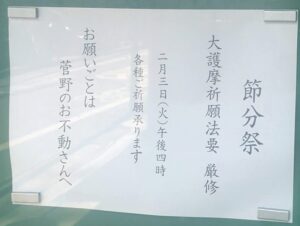 節分祭
大護摩祈願法要 厳修
二月三日(火)午後四時
各種ご祈願承ります
お願いごとは
菅野のお不動さんへ